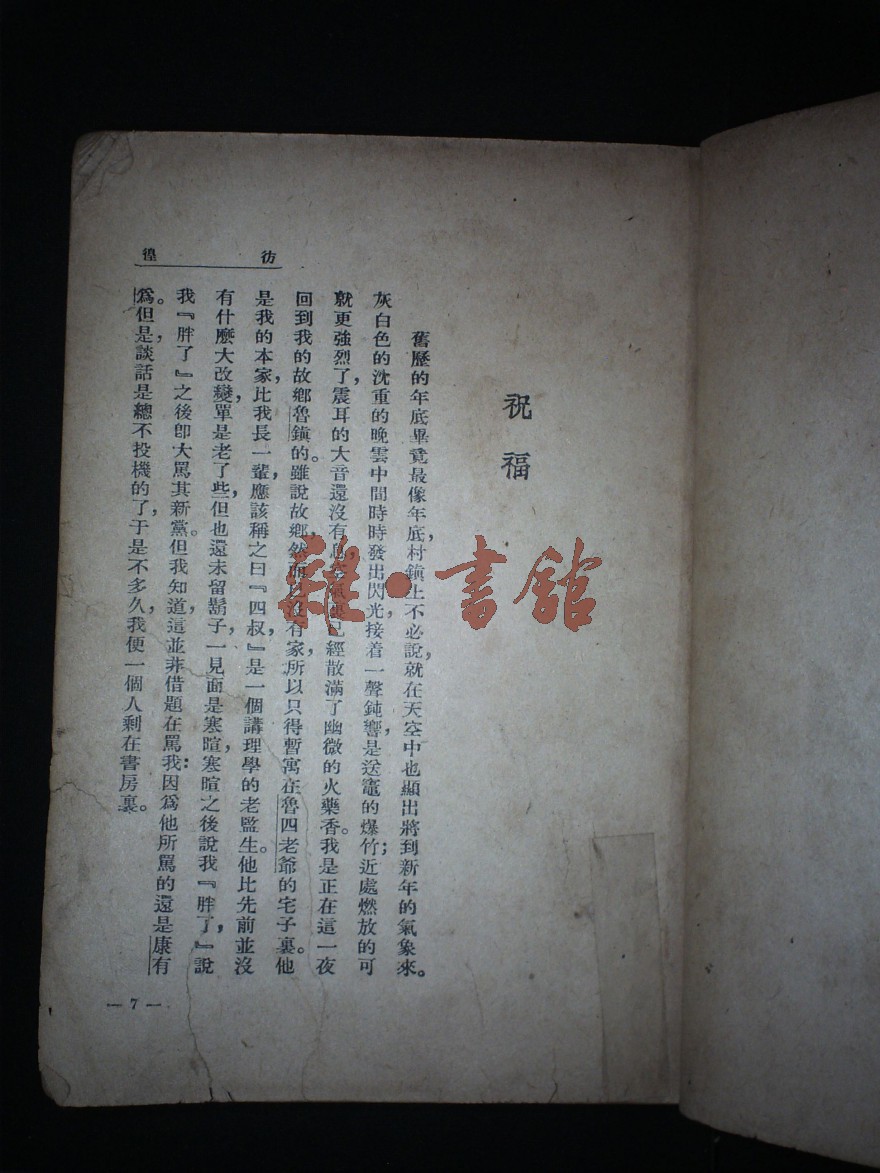 彷徨
祝福
舊曆的年底畢竟最像年底，村鎮上不必說，就在天空中也顯出將到新年的氣象來。
灰白色的沈重的晚雲中間時時發出閃光，接着一聲鈍響，是送竈的爆竹；近處燃放的可
就更強烈了，震耳的大音還沒有息，空氣裏已經散滿了幽微的火藥香。我是正在這一夜
回到我的故鄉魯鎮的。雖說故鄉，然而已沒有家，所以只得暫寓在魯四老爺的宅子裏。他
是我的本家，比我長一輩，應該稱之曰『四叔』，是一個講理學的老監生。他比先前並沒
有什麼大改變，單是老了些，但也還未留鬍子，一見面是寒暄，寒暄之後說我『胖了』，說
我『胖了』之後即大罵其新黨。但我知道，這並非借題在罵我：因爲他所罵的還是康有
爲。但是，談話是總不投機的了，于是不多久，我便一個人剩在書房裏。
— 7 —
雜·書館